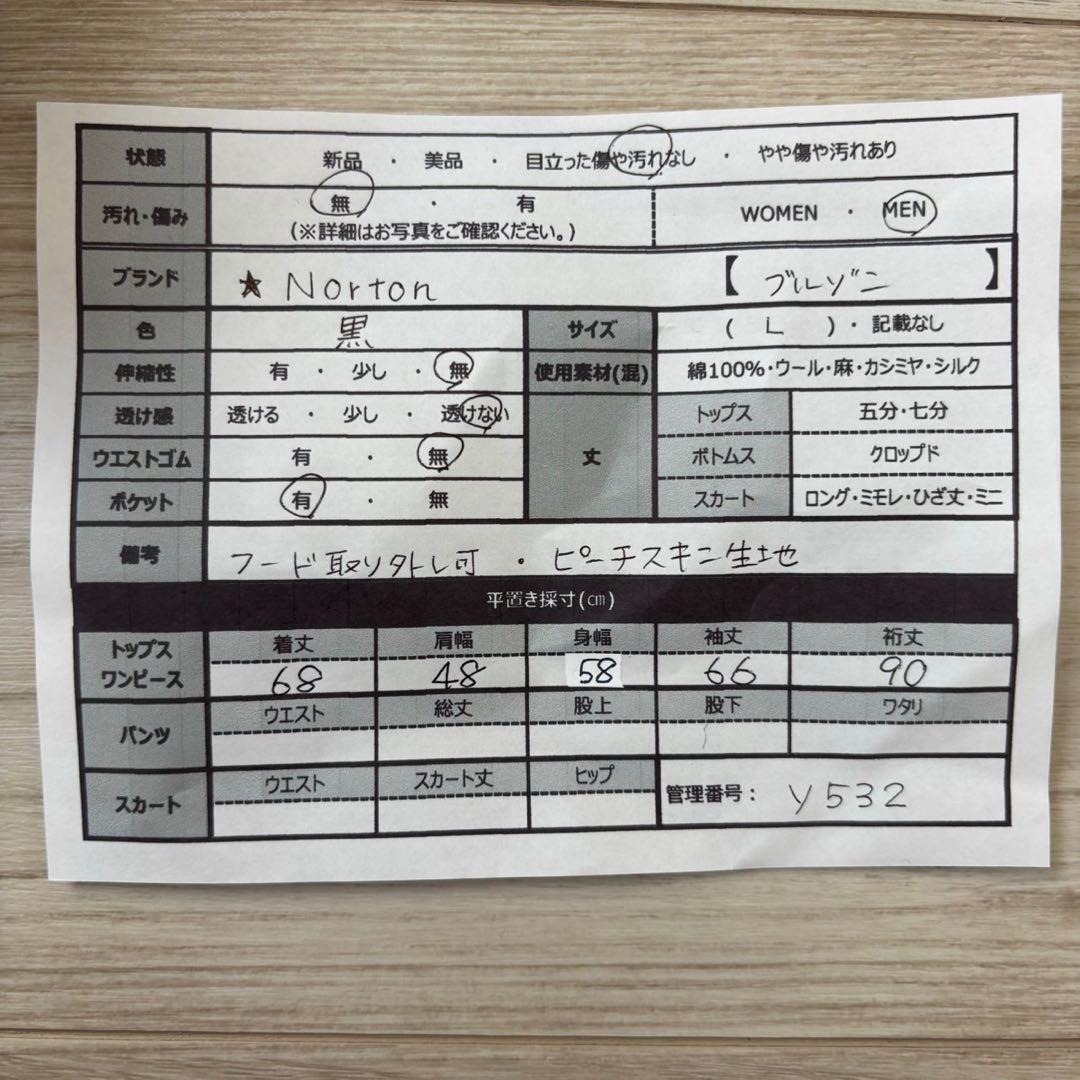 状態 新品 ・ 美品 ・ 目立った傷や汚れなし ・ やや傷や汚れあり
汚れ・傷み 無 ・ 有 WOMEN ・ MEN
(※詳細はお写真をご確認ください。)
ブランド ★ Norton 【 ブルゾン 】
色 黒 サイズ ( L )・記載なし
伸縮性 有 ・ 少し ・ 無 使用素材(混) 綿100%・ウール・麻・カシミヤ・シルク
透け感 透ける ・ 少し ・ 透けない 丈 トップス 五分・七分
ウエストゴム 有 ・ 無 ボトムス クロップド
ポケット 有 ・ 無 スカート ロング・ミモレ・ひざ丈・ミニ
備考 フード取り外し可 ・ ピーチスキン生地
平置き採寸(㎝)
トップス ワンピース 着丈 肩幅 身幅 袖丈 裄丈
68 48 58 66 90
パンツ ウエスト 総丈 股上 股下 ワタリ
スカート ウエスト スカート丈 ヒップ 管理番号: y532